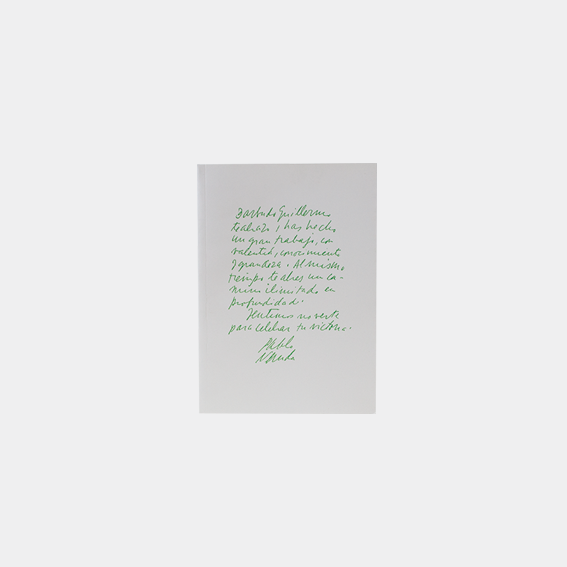 Barbudo Guillermo
te abrazo, has hecho
un gran trabajo, con
valentía, conocimiento
y grandeza. Al mismo
tiempo te abres un ca-
mino ilimitado en
profundidad.
Sentimos no verte
para celebrar tu victoria.
Pablo
Neruda